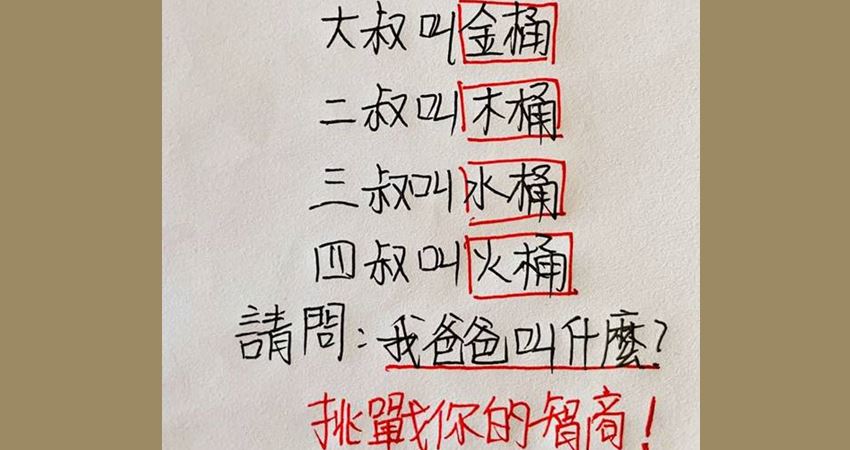 大叔叫金桶
二叔叫木桶
三叔叫水桶
四叔叫火桶
請問：我爸爸叫什麼？
挑戰你的智商！